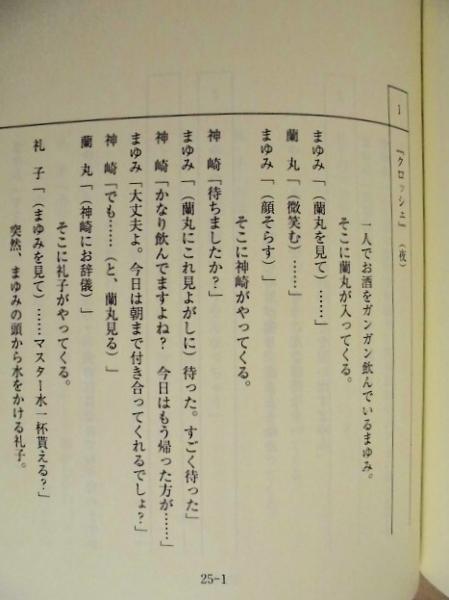 1 『クロッシェ』（夜）
一人でお酒をガンガン飲んでいるまゆみ。
そこに蘭丸が入ってくる。
まゆみ「（蘭丸を見て）……」
蘭　丸「（微笑む）……」
まゆみ「（顔そらす）」
そこに神崎がやってくる。
神　崎「待ちましたか？」
まゆみ「（蘭丸にこれ見よがしに）待った。すごく待った」
神　崎「かなり飲んでますよね？　今日はもう帰った方が……」
まゆみ「大丈夫よ。今日は朝まで付き合ってくれるでしょ？」
神　崎「でも……（と、蘭丸見る）」
蘭　丸「（神崎にお辞儀）」
そこに礼子がやってくる。
礼　子「（まゆみを見て）……マスター水一杯貰える？」
突然、まゆみの頭から水をかける礼子。
25-1